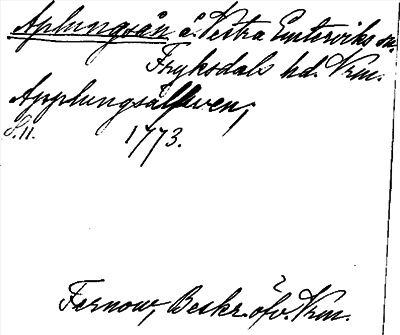 Aplungsån å. Vestra Emterviks sn.
Fryksdals hd. Vrm.
Applungsälfwen,
S. 11. 1773.
Fernow, Beskr. öfv. Vrm.